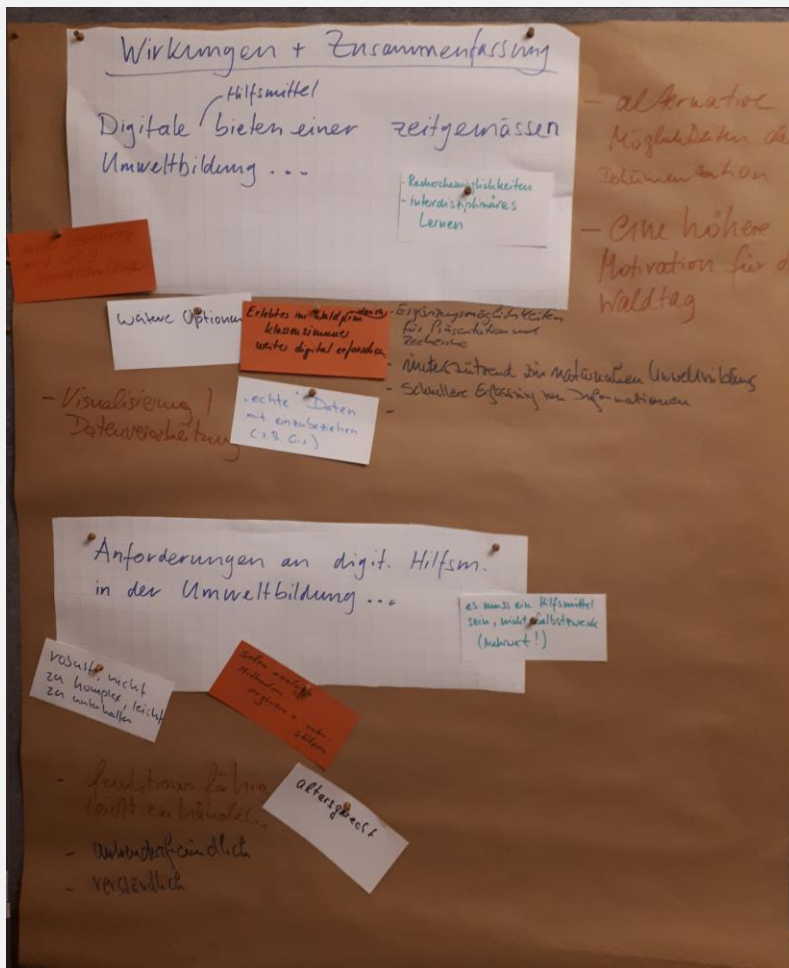 Wirkungen + Zusammenfassung
Hilfsmittel
Digitale bieten einer zeitgemässen
Umweltbildung ...
- Recherchemöglichkeiten
- interdisziplinäres
Lernen
- alternative
Möglichkeiten de
Dokumentation
- eine höhere
Motivation für d
Waldtag
weitere Optionen
Erlebtes im Wald, im
klassenzimmer
weiter digital erforschen
- Ergänzungsmöglichkeiten
für Präsentation und
Recherche
- unterstützend zur Umweltbildung
- Schnellere Erfassung von Informationen
-
- Visualisierung /
Datenverarbeitung
"echte" Daten
mit einzubeziehen
(z.B. Gis)
Anforderungen an digit. Hilfsm.
in der Umweltbildung ...
es muss ein Hilfsmittel
sein, nicht Selbstzweck
(Mehrwert!)
robust, nicht
zu komplex, leicht
zu unterhalten
sollen analoge
Methoden
altersgerecht
- funktionsfähig
leicht zu händeln
- anwenderfreundlich
- verständlich